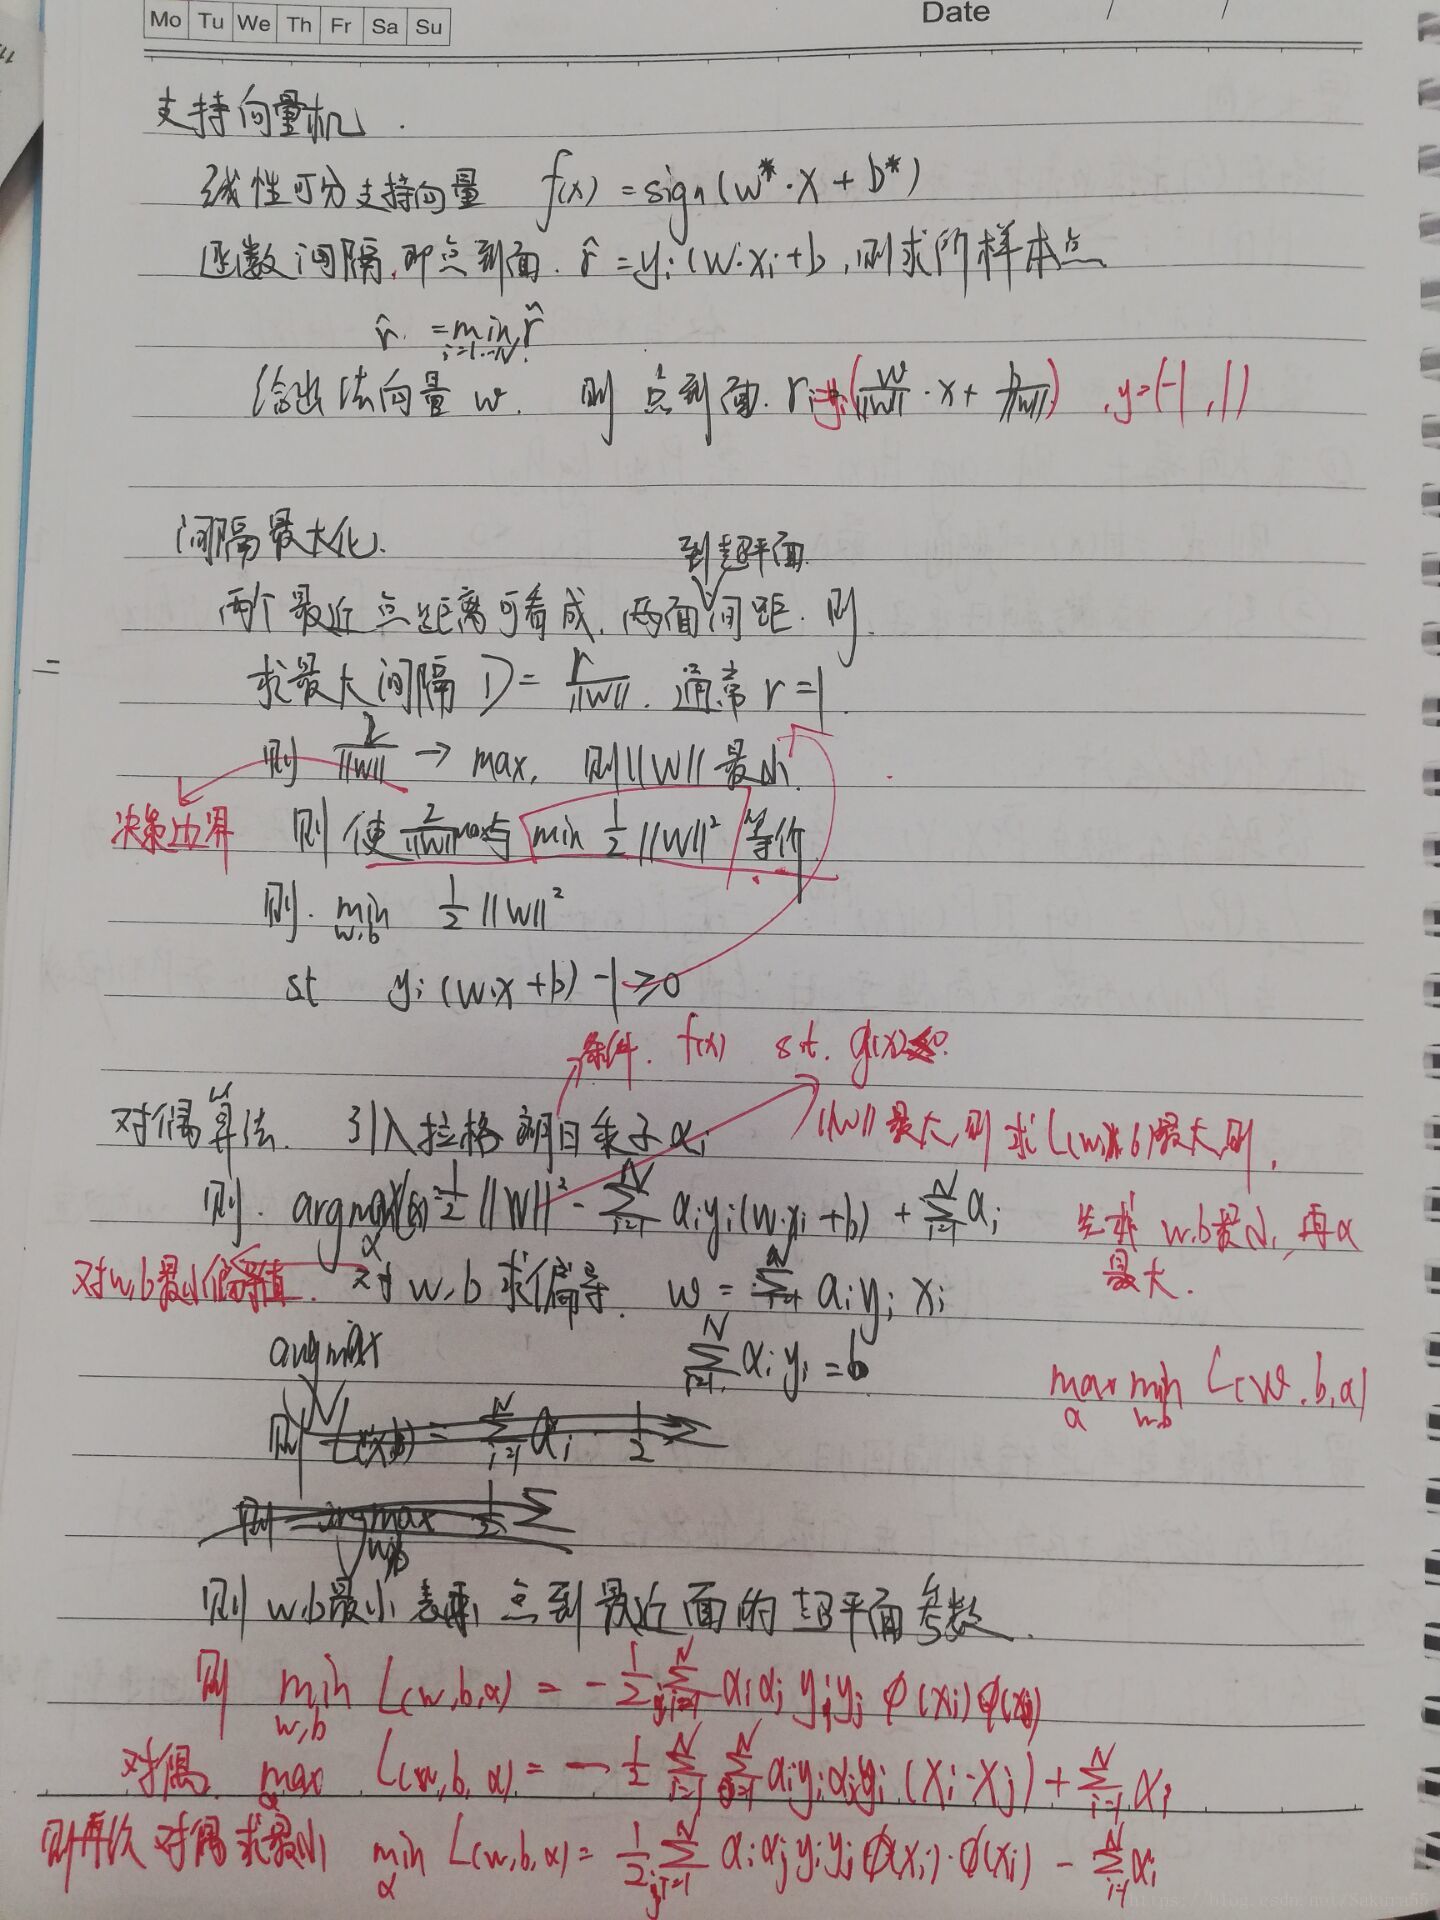 Mo Tu We Th Fr Sa Su
Date / /
支持向量机.
线性可分支持向量 f(x) = sign(w*·x + b*)
函数间隔,即点到面. r̂ = yᵢ(w·xᵢ+b,则求所样本点
r̂ = min r̂
i=1…N
给出法向量 w. 则 点到面. rᵢ=yᵢ(w/||w||·x + b/||w||) , y=(-1,1)
间隔最大化.
到超平面.
两个最近点距离可看成,两面间距.则
求最大间隔 D = r/||w||. 通常 r=1.
则 2/||w|| → max, 则||w||最小.
决策边界 则使 2/||w|| max与 min ½||w||² 等价
则. min ½||w||²
w,b
st yᵢ(w·x+b) -1≥0
条件. f(x) s.t. g(x)≤0.
对偶算法. 引入拉格朗日乘子 αᵢ
||w||最大,则求L(w,b)最大,则,
则. argmax = ½||w||² - Σᵢ₌₁ᴺ αᵢyᵢ(w·xᵢ+b) + Σᵢ₌₁ᴺ αᵢ
α
先求 w.b最小, 再α
最大.
对w,b最小偏导值. 对 w,b 求偏导. w = Σᵢ₌₁ᴺ αᵢyᵢ xᵢ
argmax Σᵢ₌₁ᴺ αᵢyᵢ = b
max min L(w.b,α)
α w,b
则 = Σᵢ₌₁ᴺ αᵢ · ½ Σ
则 argmax ½ Σ
w,b
则 w.b最小表示 点到最近面的超平面参数.
则 min L(w,b,α) = -½ Σ αᵢαⱼ yᵢyⱼ φ(xᵢ)φ(xⱼ)
w,b
对偶. max L(w,b,α) = -½ Σᵢ₌₁ᴺ Σⱼ₌₁ᴺ αᵢyᵢαⱼyⱼ (xᵢ·xⱼ) + Σᵢ₌₁ᴺ αᵢ
α
则再次对偶求最小 min L(w,b,α) = ½ Σ αᵢαⱼyᵢyⱼ φ(xᵢ)·φ(xᵢ) - Σᵢ₌₁ᴺ αᵢ
α
https://blog.csdn.net/Sakura55